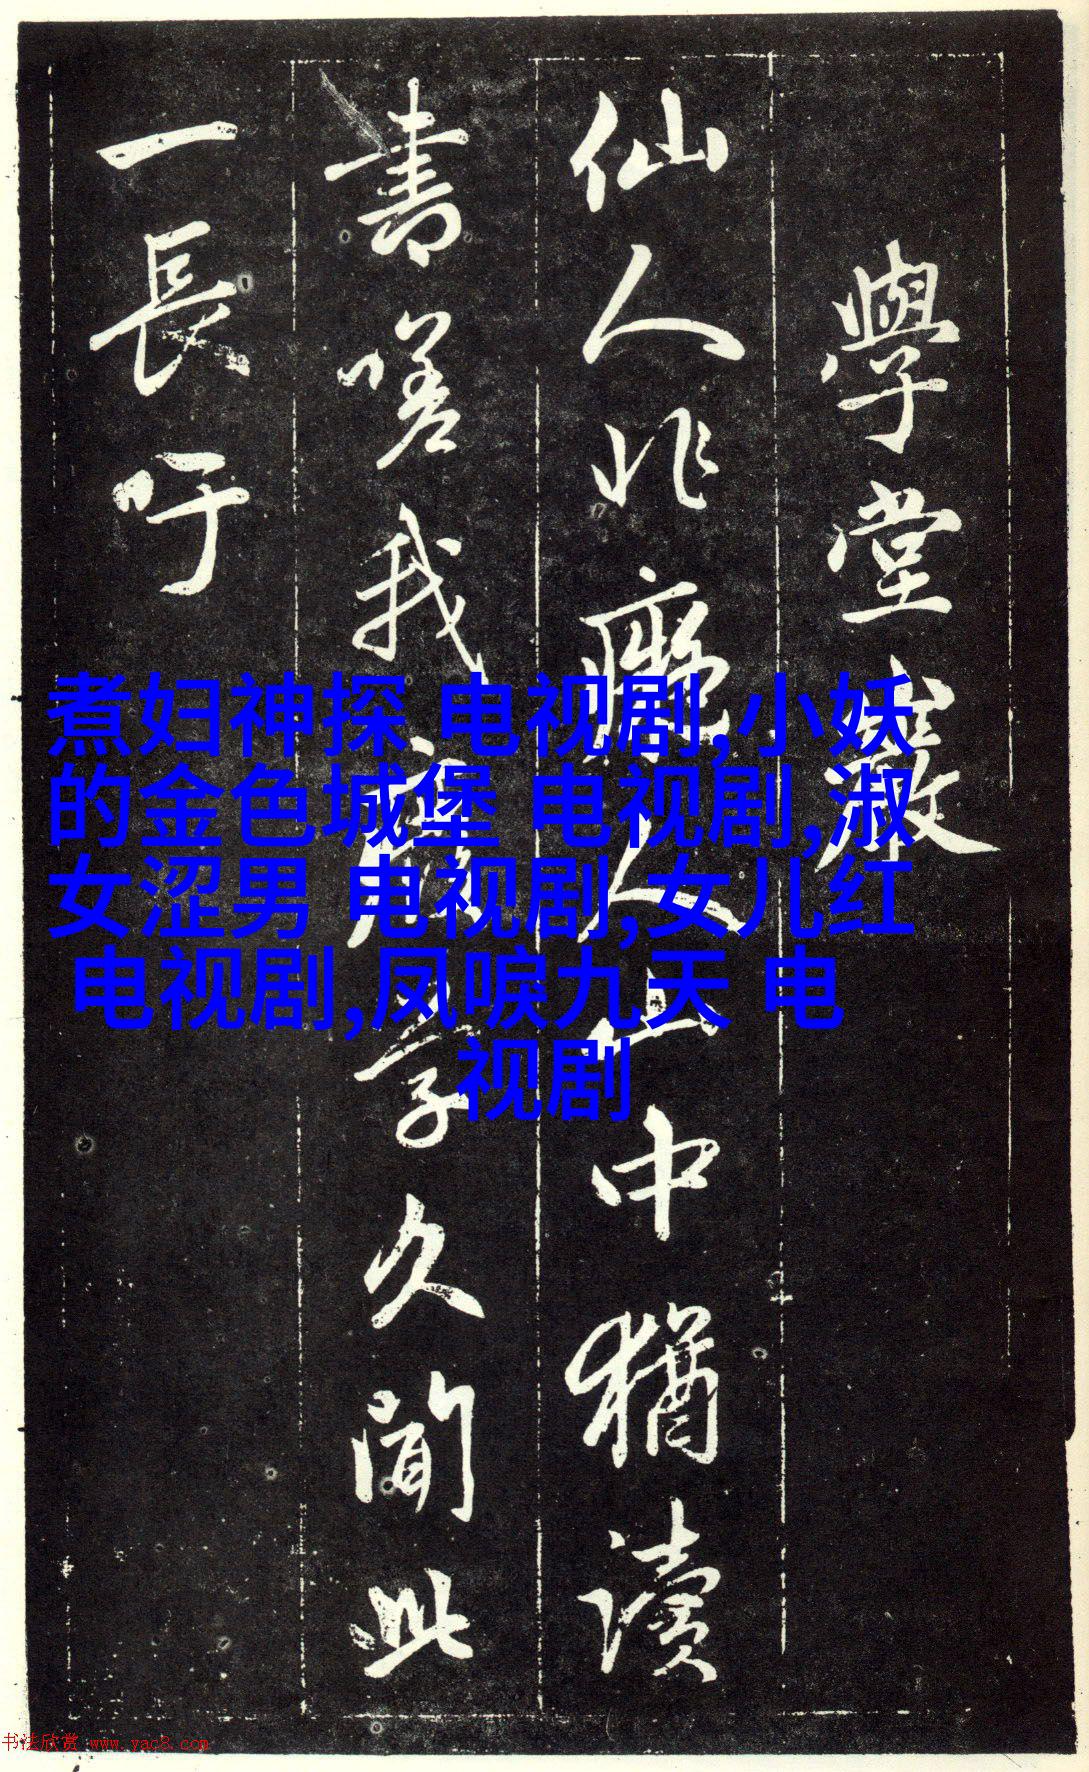 學堂巖
仙人非癡人山中猶讀
書嗟我廢學久聞此
一長吁
煮妇神探 电视剧,小妖
的金色城堡 电视剧,淑
女涩男 电视剧,女儿红
电视剧,凤唳九天 电
视剧
书法欣赏 www.yac8.com